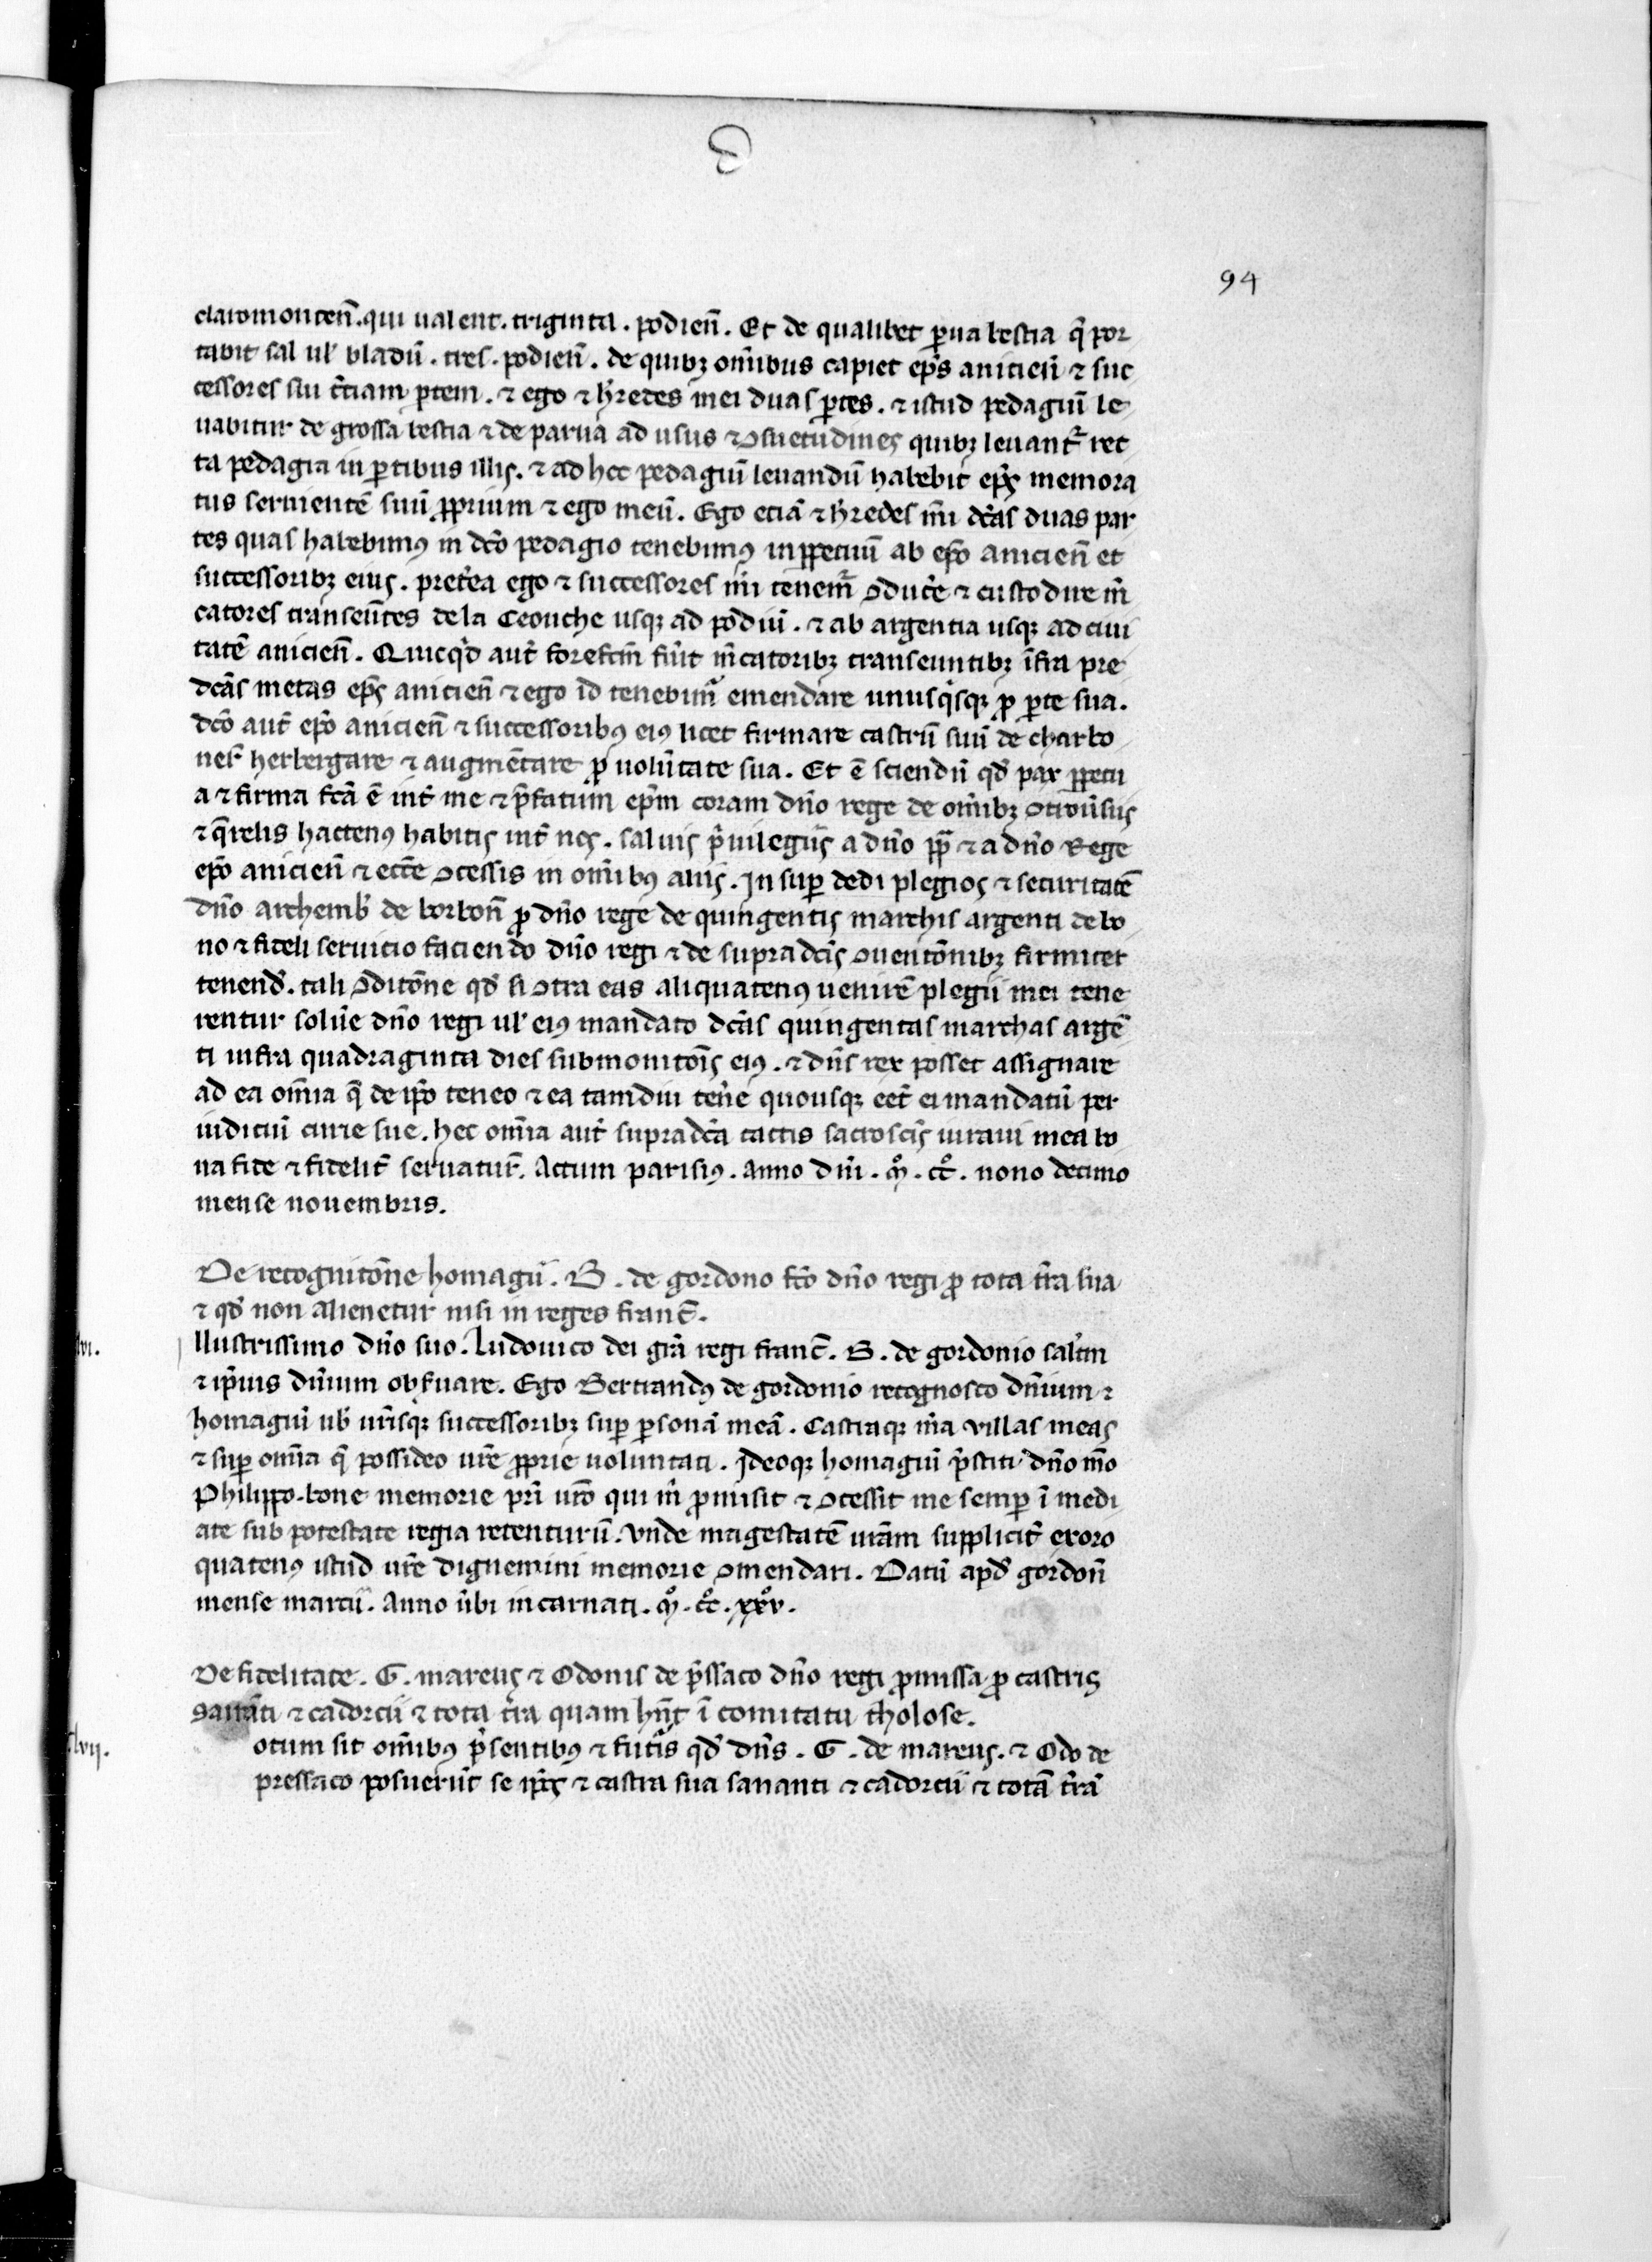 94
claromonten̄. qui ualent. triginta. podien̄. Et de qualibet ꝑua bestia q̄ por
tabit sal ul' bladū. tres. podien̄. de quibꝫ om̄ibus capiet ep̄s anicien̄ ⁊ suc
cessores sui t̄ciam ꝑtem. ⁊ ego ⁊ h̄redes mei duas ꝑtes. ⁊ istud pedagiū le
uabitur de grossa bestia ⁊ de parua ad usus ⁊ ↄsuetudines quibꝫ leuant᷑ rec
ta pedagia in ꝑtibus illis. ⁊ ad hec pedagiū leuandū habebit ep̄s memora
tus seruientē suū ꝓprium ⁊ ego meū. Ego etiā ⁊ h̄redes mi dc̄as duas par
tes quas habebimꝰ in dc̄o pedagio tenebimꝰ inꝑpetuū ab ep̄o anicien̄ et
successoribꝫ eiꝰ. pret̄ea ego ⁊ successores mi tenem᷑ ↄduc̄e ⁊ custodire m̄
catores transeūtes de la Ceouche usqꝫ ad podiū. ⁊ ab argentia usqꝫ ad ciui
tatē anicien̄. Quicq̇d aut̄ forefc̄m fūit m̄catoribꝫ transeuntibꝫ īfra pre
dc̄as metas ep̄s anicien̄ ⁊ ego id tenebimꝰ emendare unusq̇sqꝫ ꝓ ꝑte sua.
dc̄o aut̄ ep̄o anicien̄ ⁊ successoribꝰ eiꝰ licet firmare castrū suū de charbo
nes herbergare ⁊ augmētare ꝓ uolūtate sua. Et ē sciendū qd̄ pax ꝑpetu
a ⁊ firma fc̄a ē int̄ me ⁊ p̄fatum ep̄m coram dn̄o rege de om̄ibꝫ ↄtrou̅siis
⁊ q̄relis hactenꝰ habitis int̄ nos. saluis p̄uilegiis a dn̄o pp̄ ⁊ a dn̄o Rege
ep̄o anicien̄ ⁊ ecc̄e ↄcessis in om̄ibꝰ aliis. In suꝑ dedi plegios ⁊ securitatē
dn̄o archemb' de borbon̄ ꝓ dn̄o rege de quingentis marchis argenti de bo
no ⁊ fideli seruicio faciendo dn̄o regi ⁊ de supradc̄is ↄuentōnibꝫ firmiter
tenend'. tali ↄditōne qd̄ si ↄtra eas aliquatenꝰ uenirē plegii mei tene
rentur solūe dn̄o regi ul' eiꝰ mandato dc̄as quingentas marchas argē
ti infra quadraginta dies submonitōis eiꝰ. ⁊ dn̄s rex posset assignare
ad ea om̄ia q̄ de ip̄o teneo ⁊ ea tamdiu ten̄e quousqꝫ eēt ei mandatū per
iudiciū curie sue. hec om̄ia aut̄ supradc̄a tactis sacrosc̄is iuraui mea bo
na fide ⁊ fidelit̄ seruatur̄. Actum parisiꝰ. Anno dn̄i. m̊. cc̊. nono decimo
mense nouembris.
De recognitōne homagii. B. de gordono fc̄o dn̄o regi ꝓ tota t̄ra sua
⁊ qd̄ non alienetur nisi in reges franc̄.
lvi.
llustrissimo dn̄o suo. Ludouico dei gr̄a regi franc̄. B. de gordonio sal̄tm
⁊ ip̄ius dn̄ium obs̄uare. Ego Bertrandꝰ de gordonio recognosco dn̄ium ⁊
homagiū ub' ur̄isqꝫ successoribꝫ suꝑ ꝑsonā meā. Castraqꝫ m̄a villas meas
⁊ suꝑ om̄ia q̄ possideo ur̄e ꝓprie uoluntati. Ideoqꝫ homagiū p̄stiti dn̄o m̄o
Philippo bone memorie pr̄i ur̄o qui m̄ ꝓmisit ⁊ ↄcessit me semꝑ ī medi
ate sub potestate regia retenturū. Vnde magestatē ur̄am supplicit̄ exoro
quatenꝰ istud ur̄e dignemini memorie ↄmendari. Datū apd̄ gordon̄
mense marcii. Anno ūbi incarnati. m̊. cc̊. xxv̊.
De fidelitate. G. mareiis ⁊ Odonis de p̄ssaco dn̄o regi ꝓmissa ꝓ castris
sauāti ⁊ cadorcii ⁊ tota t̄ra quam hn̄t ī comitatu tholose.
lvij.
otum sit om̄ibꝰ p̄sentibꝰ ⁊ futīs qd̄ dn̄s. G. de mareiis. ⁊ Odo de
pressaco posuerūt se ip̄os ⁊ castra sua sauanti ⁊ cadorcii ⁊ totā t̄rā